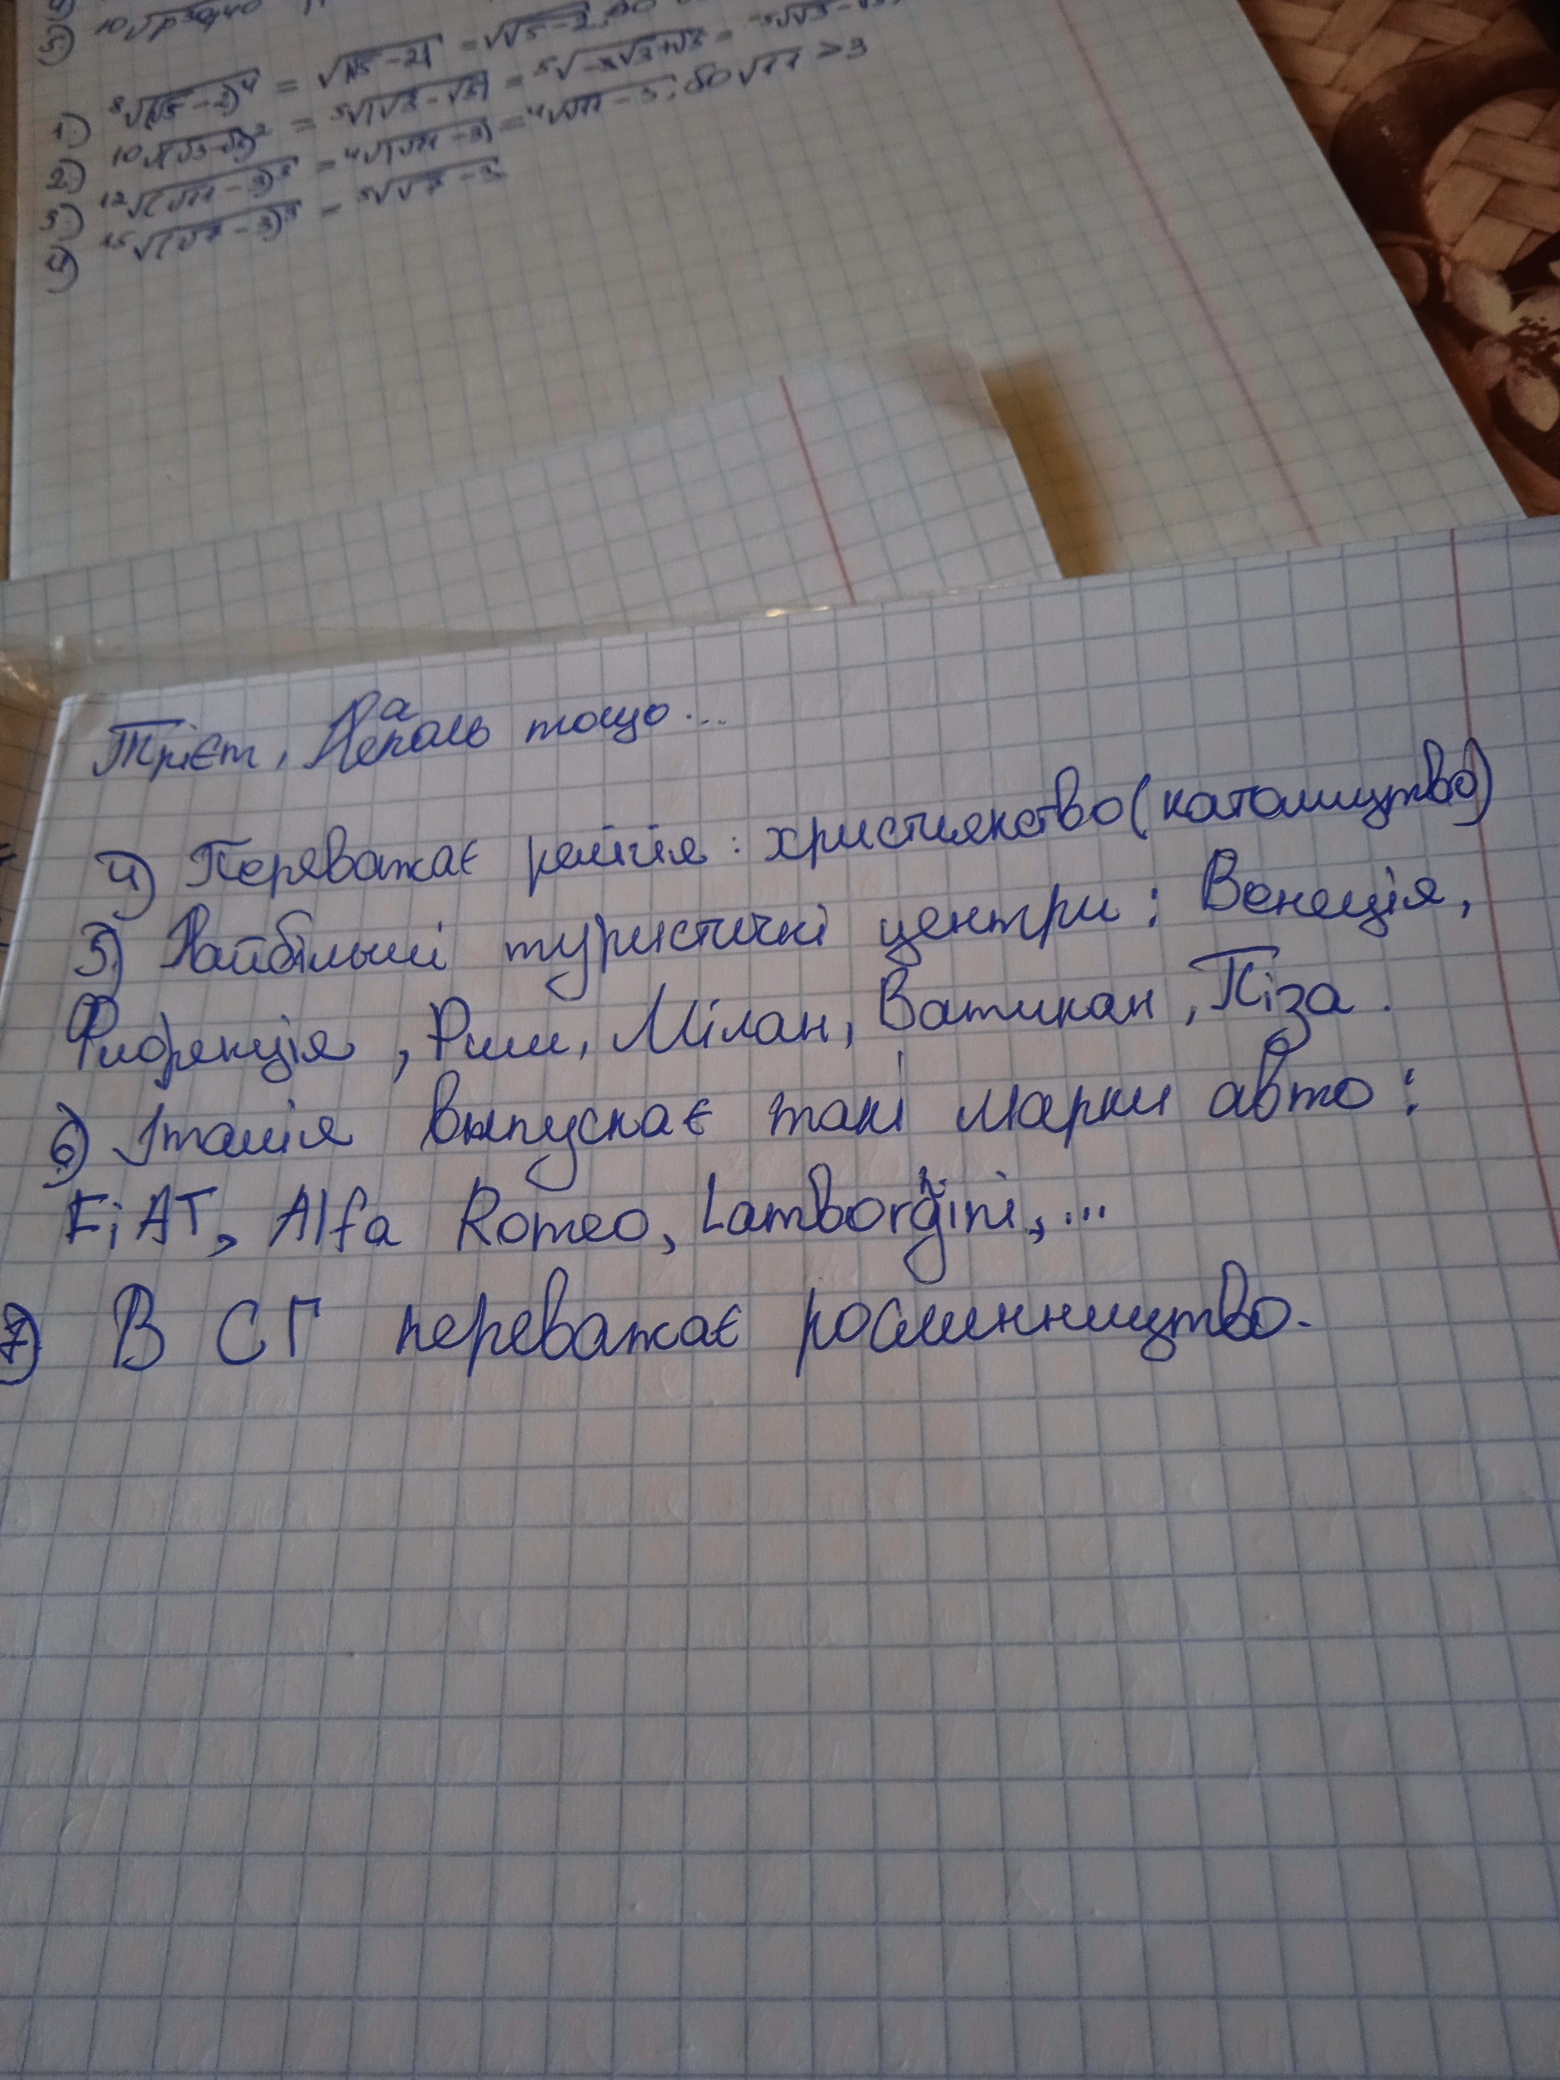 1) ⁸√(√5-2)⁴ = √|√5-2| = √√5-2
2) ¹⁰√(√3-√3)² = ⁵√
3) ¹²√(√11-3)³ = ⁴√(√11-3) = ⁴√√11-3; бо √11 > 3
4) ¹⁵√(√7-3)³ = ⁵√√7-3
Трієт, Неаполь тощо...
4) Переважає релігія: християнство (католицтво)
5) Найбільші туристичні центри: Венеція,
Флоренція, Рим, Мілан, Ватикан, Піза.
6) Італія випускає такі марки авто:
FiAT, Alfa Romeo, Lamborghini, ...
7) В СГ переважає рослинництво.